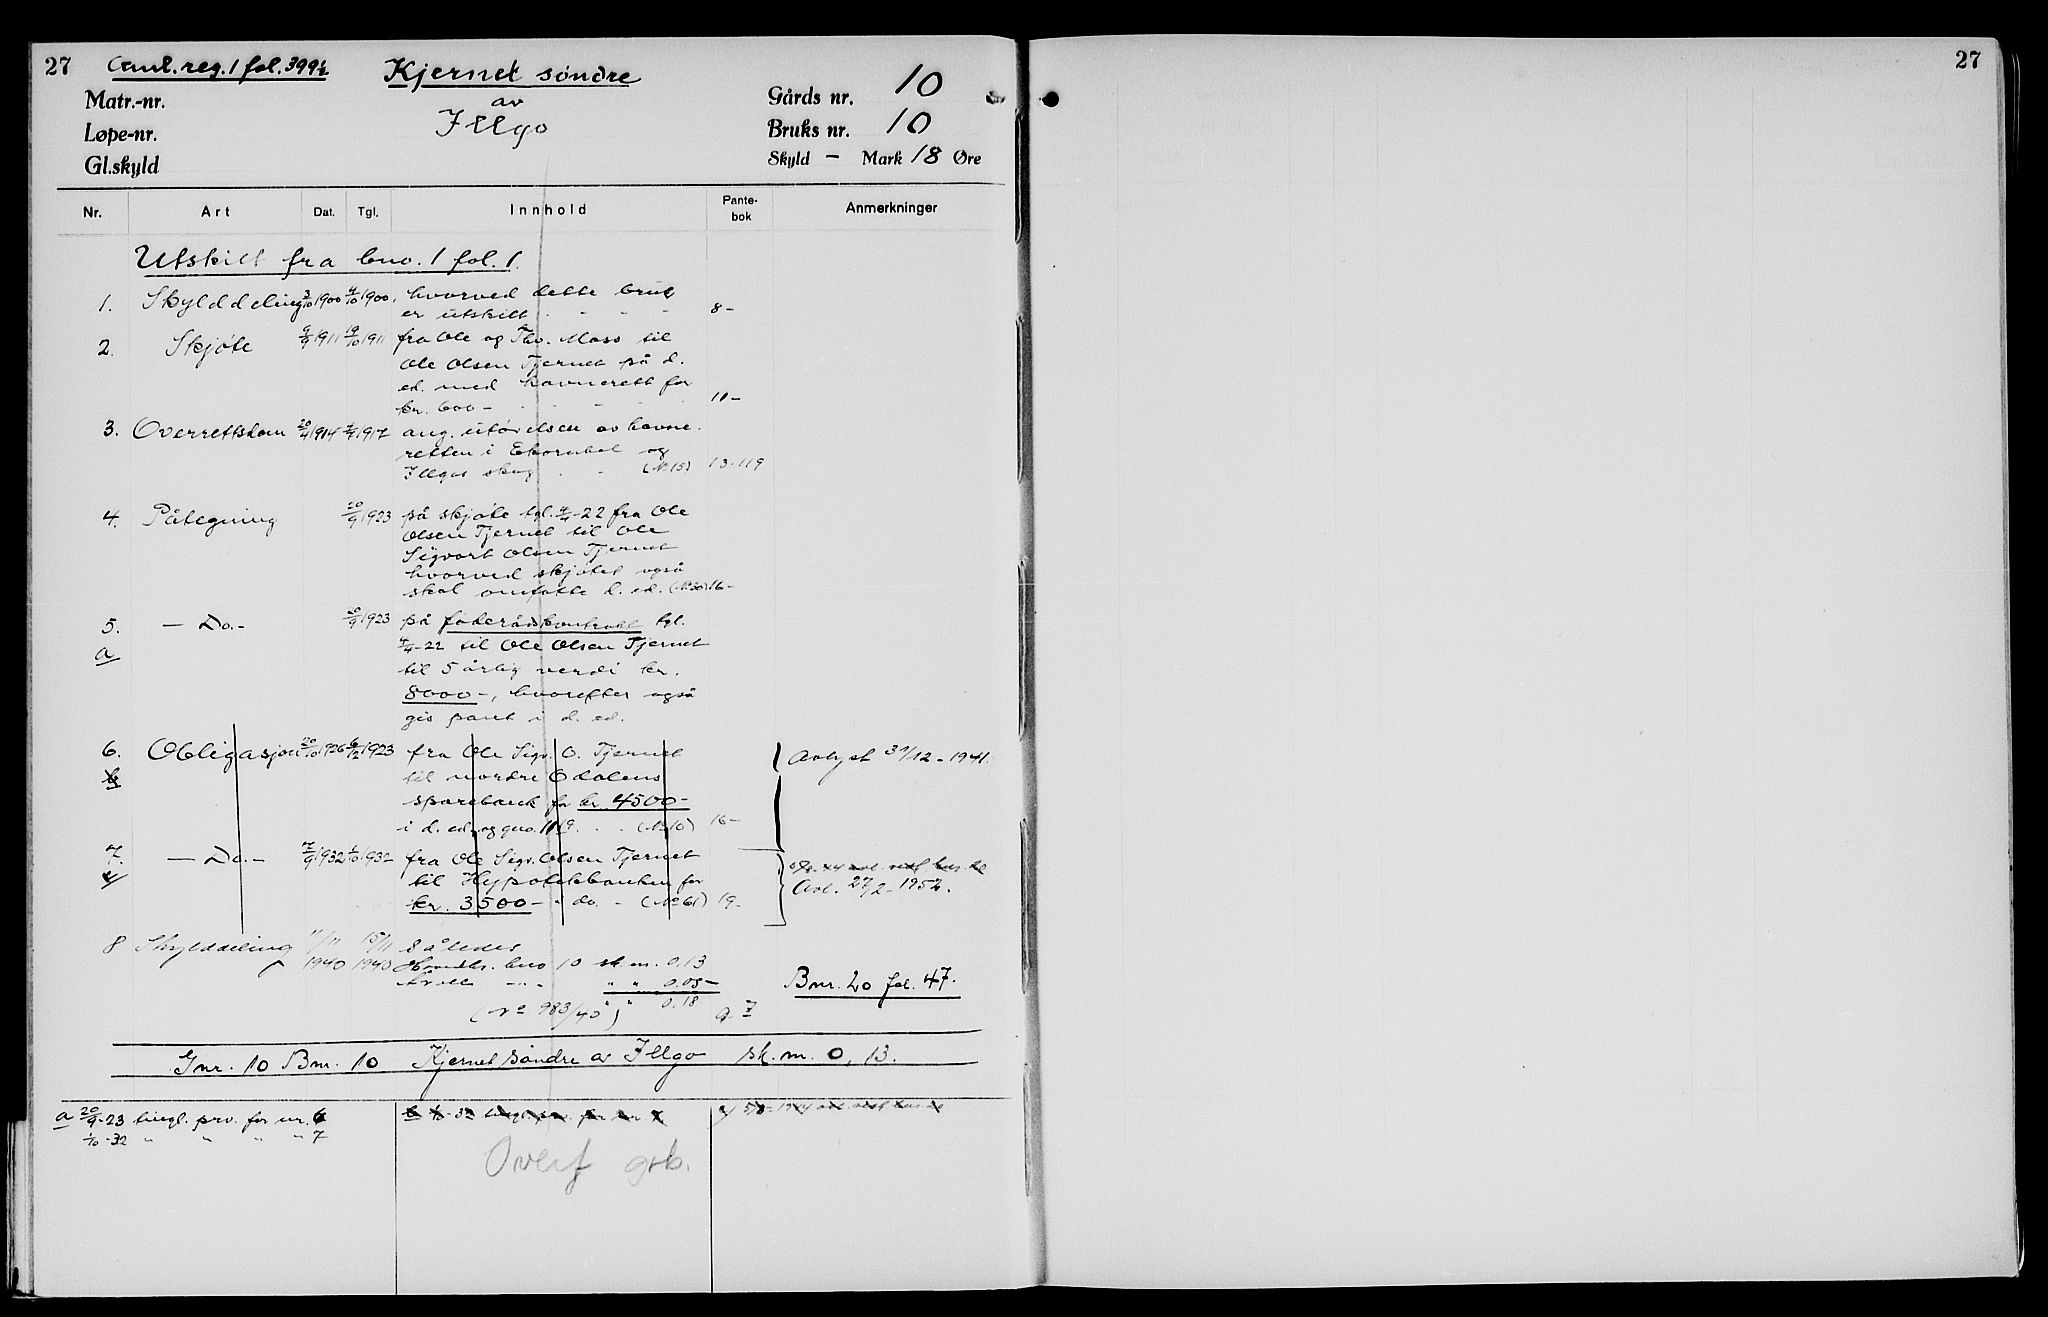 27 Aml. reg. 1 fol. 399½ Kjernet søndre
av
Illgo
Matr.-nr.
Løpe-nr.
Gl.skyld
Gårds nr. 10
Bruks nr. 10
Skyld – Mark 18 Øre
Nr. Art Dat. Tgl. Innhold Pante-bok Anmerkninger
Utskilt fra bno. 1 fol. 1.
1. Skylddeling 3/10 1900 4/10 1900. hvorved dette bruk
er utskilt - - - - 8-
2. Skjøte 9/9 1911 19/10 1911 fra Ole og Thv. Moss til
Ole Olsen Tjernet på d.
ed. med havnerett for
kr. 600- - - - - 11-
3. Overrettsdom 20/4 1914 7/7 1917 ang. utøvelsen av havne-
retten i Ekornhol og
Illgos skog - - (№ 15) 13-119
4. Påtegning 20/9 1923 på skjøte tgl. 4/4-22 fra Ole
Olsen Tjernet til Ole
Sigvart Olsen Tjernet
hvorved skjøtet også
skal omfatte d. ed. (№ 30) 16-
5. — Do.- 20/9 1923 på føderådskontrakt tgl.
a 4/4-22 til Ole Olsen Tjernet
til 5 årlig verdi kr.
8000-, hvorefter også
gis pant i d. ed.
6. Obligasjon 20/10 1926 6/12 1923 fra Ole Sigv. O. Tjernet Avlyst 31/12 - 1941.
b til nordre Odalens
sparebank for kr. 4500-
i d. ed. og gno. 11/9. . . (№ 10) 16-
7. — Do.- 7/9 1932 1/10 1932 fra Ole Sigv. Olsen Tjernet
til Hypotekbanken for Avl. 27/2 - 1952.
kr. 3500- - do. - (№ 61) 19-
8 Skylddeling 11/11 1940 15/11 1940 således
Hovedbr. bno 10 sk.m. 0.13
" " 0.05 Bnr. 20 fol. 47.
" " 0.18
(№ 983/40)
Gnr. 10 Bnr. 10 Kjernet søndre av Illgo sk. m. 0,13.
a 20/9-23 tingl. prv. for nr. 6
1/10-32 " " " " 7
Overf grb.
27